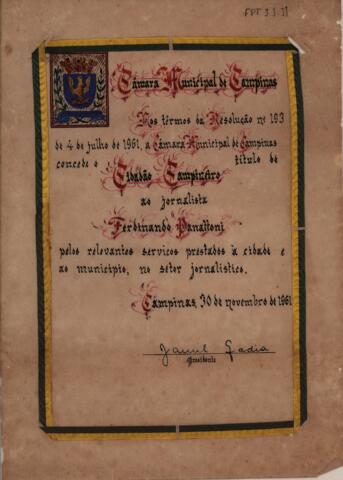 FPT 3.3.31
Câmara Municipal de Campinas
Nos têrmos da Resolução nº 193
de 4 de julho de 1961, a Câmara Municipal de Campinas
concede o título de
Cidadão Campineiro
ao jornalista
Ferdinando Panattoni
pelos relevantes serviços prestados à cidade e
ao município, no setor jornalístico.
Campinas, 30 de novembro de 1961
Jamil Gadia
Presidente